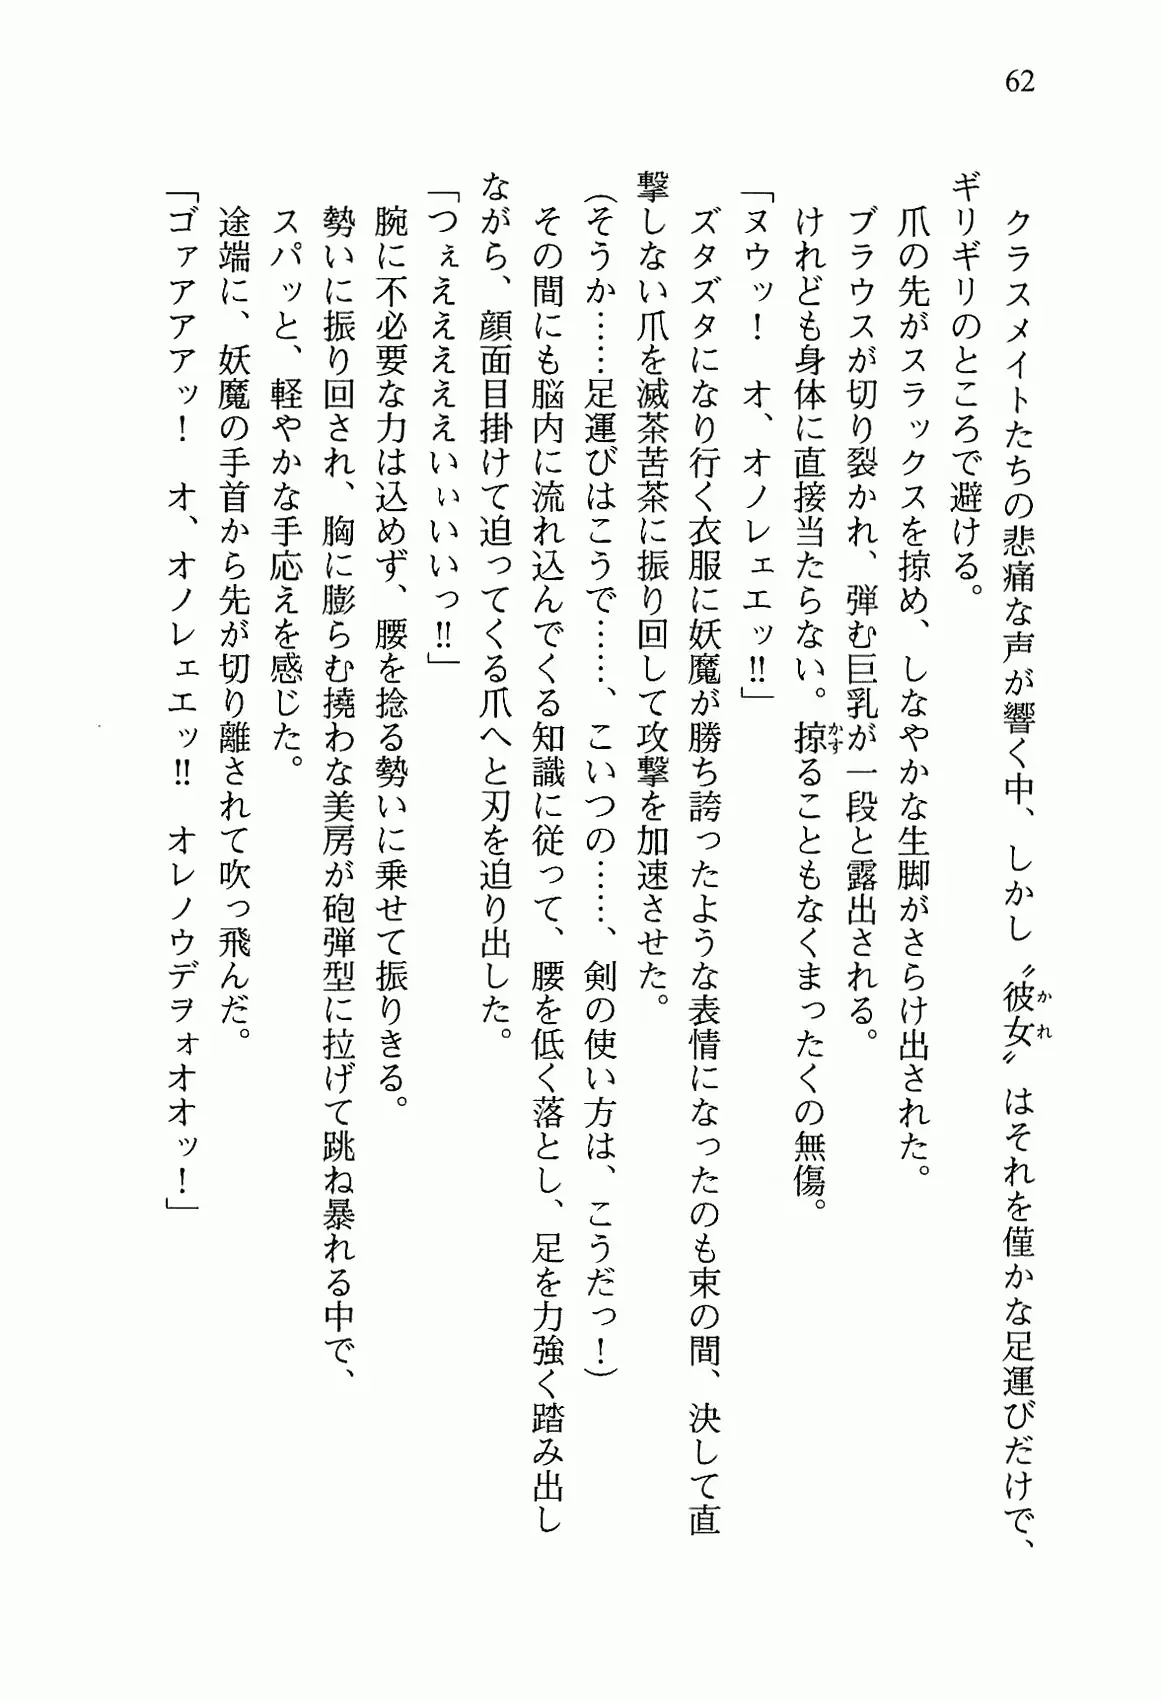 62
クラスメイトたちの悲痛な声が響く中、しかし〝彼女〟はそれを僅かな足運びだけで、
かれ
ギリギリのところで避ける。
爪の先がスラックスを掠め、しなやかな生脚がさらけ出された。
ブラウスが切り裂かれ、弾む巨乳が一段と露出される。
けれども身体に直接当たらない。掠ることもなくまったくの無傷。
かす
「ヌウッ！　オ、オノレェエッ‼」
ズタズタになり行く衣服に妖魔が勝ち誇ったような表情になったのも束の間、決して直
撃しない爪を滅茶苦茶に振り回して攻撃を加速させた。
（そうか……足運びはこうで……、こいつの……、剣の使い方は、こうだっ！）
その間にも脳内に流れ込んでくる知識に従って、腰を低く落とし、足を力強く踏み出し
ながら、顔面目掛けて迫ってくる爪へと刃を迫り出した。
「つぇえええええいぃいいっ‼」
腕に不必要な力は込めず、腰を捻る勢いに乗せて振りきる。
勢いに振り回され、胸に膨らむ撓わな美房が砲弾型に拉げて跳ね暴れる中で、
スパッと、軽やかな手応えを感じた。
途端に、妖魔の手首から先が切り離されて吹っ飛んだ。
「ゴァアアアッ！　オ、オノレェエッ‼　オレノウデヲォオオッ！」